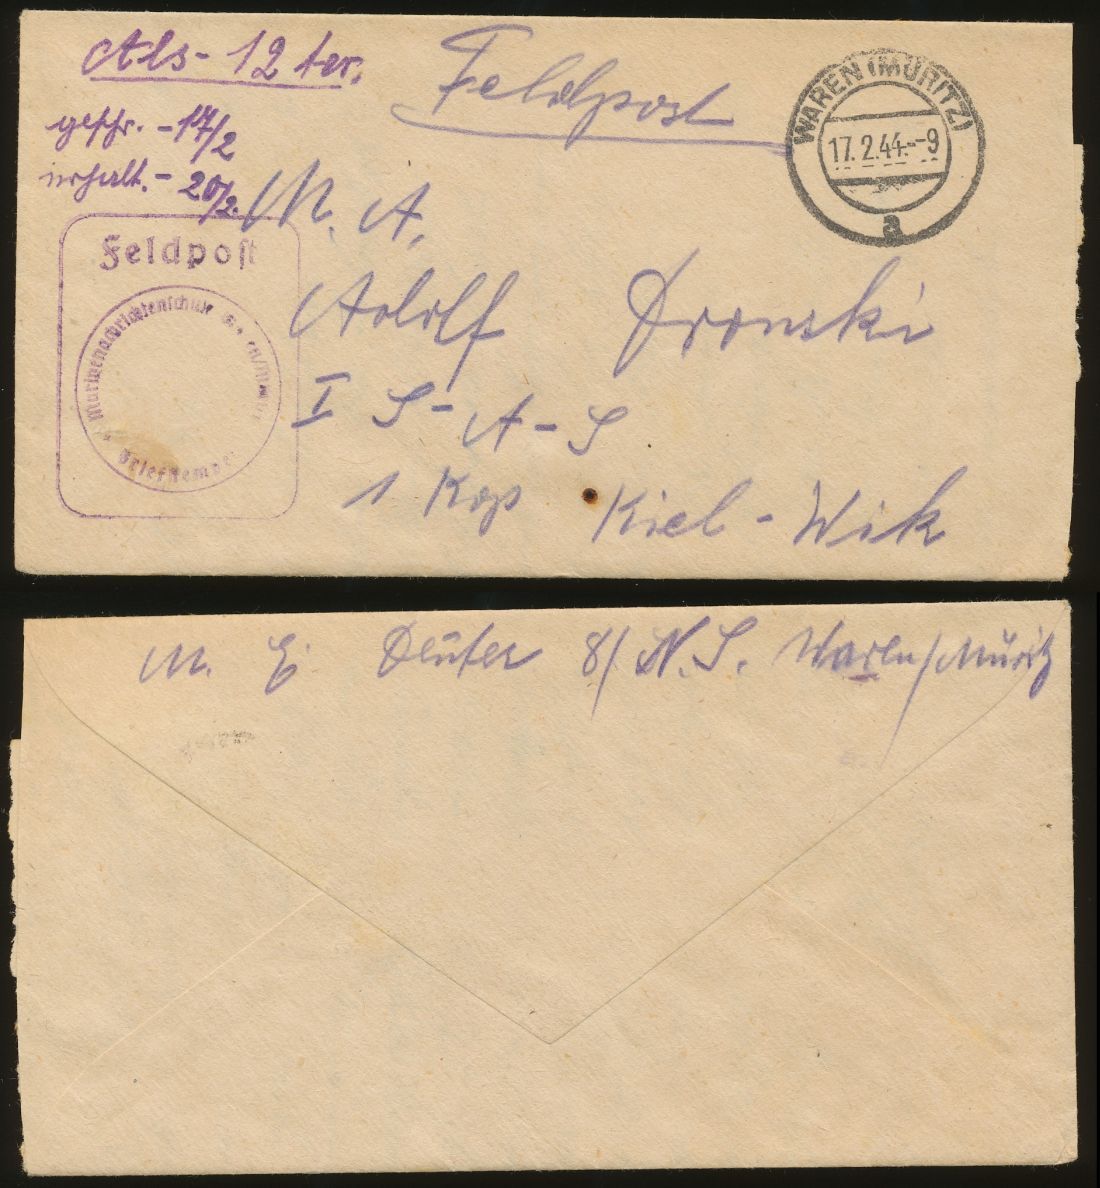 Als - 12 ter.
geschr. - 17/2
erhalt. - 20/2.
Feldpost
WAREN (MÜRITZ)
17.2.44.--9
a
M. A.
Adolf Dronski
I S - A - S
1 Kop Kiel - Wik
Feldpost
Marinenachrichtenschule
Briefstempel
M. E. Deuter 8/ N. S. Waren/Müritz